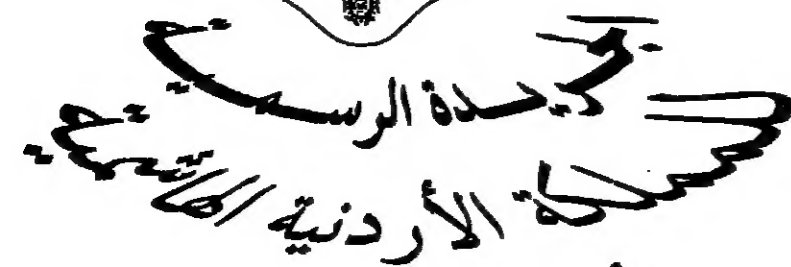 الجريدة الرسمية
للمملكة الأردنية الهاشمية